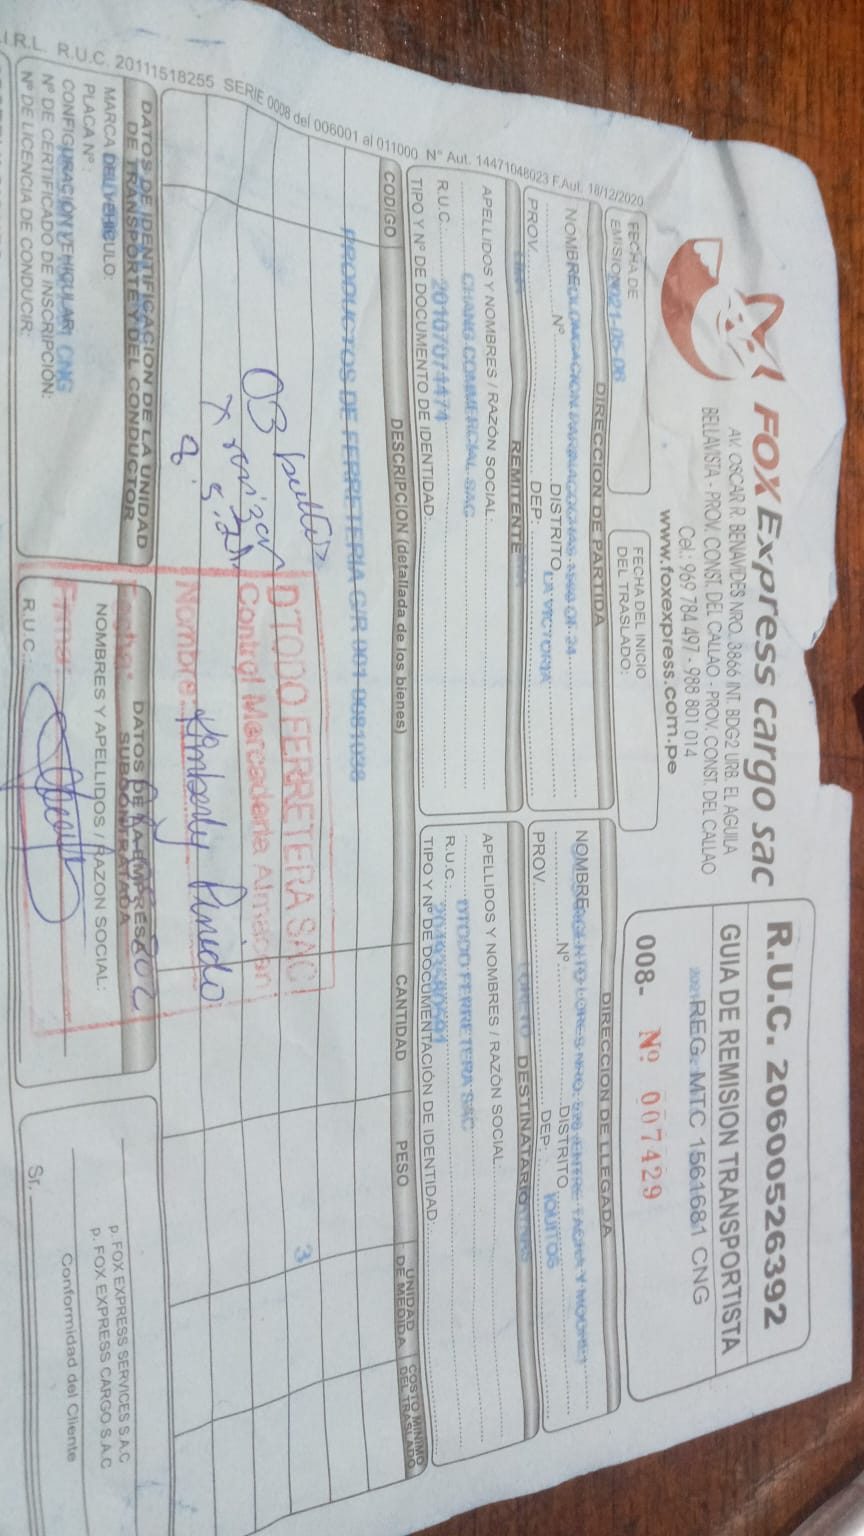 FOX Express cargo sac
AV. OSCAR R. BENAVIDES NRO. 3866 INT. BDG2 URB. EL AGUILA
BELLAVISTA - PROV. CONST. DEL CALLAO - PROV. CONST. DEL CALLAO
Cel.: 969 784 497 - 988 801 014
www.foxexpress.com.pe
R.U.C. 20600526392
GUIA DE REMISION TRANSPORTISTA
REG. MTC 1561681 CNG
008- Nº 007429
FECHA DE
EMISION 2021-05-06
FECHA DEL INICIO
DEL TRASLADO:
DIRECCION DE PARTIDA
NOMBRE
Nº DISTRITO LA VICTORIA
PROV. LIMA DEP:
DIRECCION DE LLEGADA
NOMBRE
Nº DISTRITO IQUITOS
PROV. LORETO DEP:
REMITENTE
APELLIDOS Y NOMBRES / RAZÓN SOCIAL:
CHANG COMMERCIAL SAC
R.U.C. 20107074474
TIPO Y Nº DE DOCUMENTO DE IDENTIDAD:
DESTINATARIO
APELLIDOS Y NOMBRES / RAZÓN SOCIAL:
DTODO FERRETERA SAC
R.U.C.: 20493580591
TIPO Y Nº DE DOCUMENTACIÓN DE IDENTIDAD:
CODIGO DESCRIPCION (detallada de los bienes) CANTIDAD PESO UNIDAD DE MEDIDA COSTO MINIMO DEL TRASLADO
PRODUCTOS DE FERRETERIA G/R 001 0081098
3
03 bultos
x revizar
D'TODO FERRETERA SAC
Control Mercaderia Almacen
Nombre: Kimberly Pinedo
Fecha:
Firma:
DATOS DE IDENTIFICACION DE LA UNIDAD
DE TRANSPORTE Y DEL CONDUCTOR
MARCA DEL VEHICULO:
PLACA Nº :
CONFIGURACION VEHICULAR: CNG
Nº DE CERTIFICADO DE INSCRIPCIÓN:
Nº DE LICENCIA DE CONDUCIR:
DATOS DE LA EMPRESA
SUBCONTRATADA
NOMBRES Y APELLIDOS / RAZON SOCIAL:
R.U.C.:
p. FOX EXPRESS SERVICES S.A.C
p. FOX EXPRESS CARGO S.A.C
Conformidad del Cliente
Sr.
I.R.L. R.U.C. 20111518255 SERIE 0008 del 006001 al 011000 Nº Aut. 14471048023 F.Aut. 18/12/2020